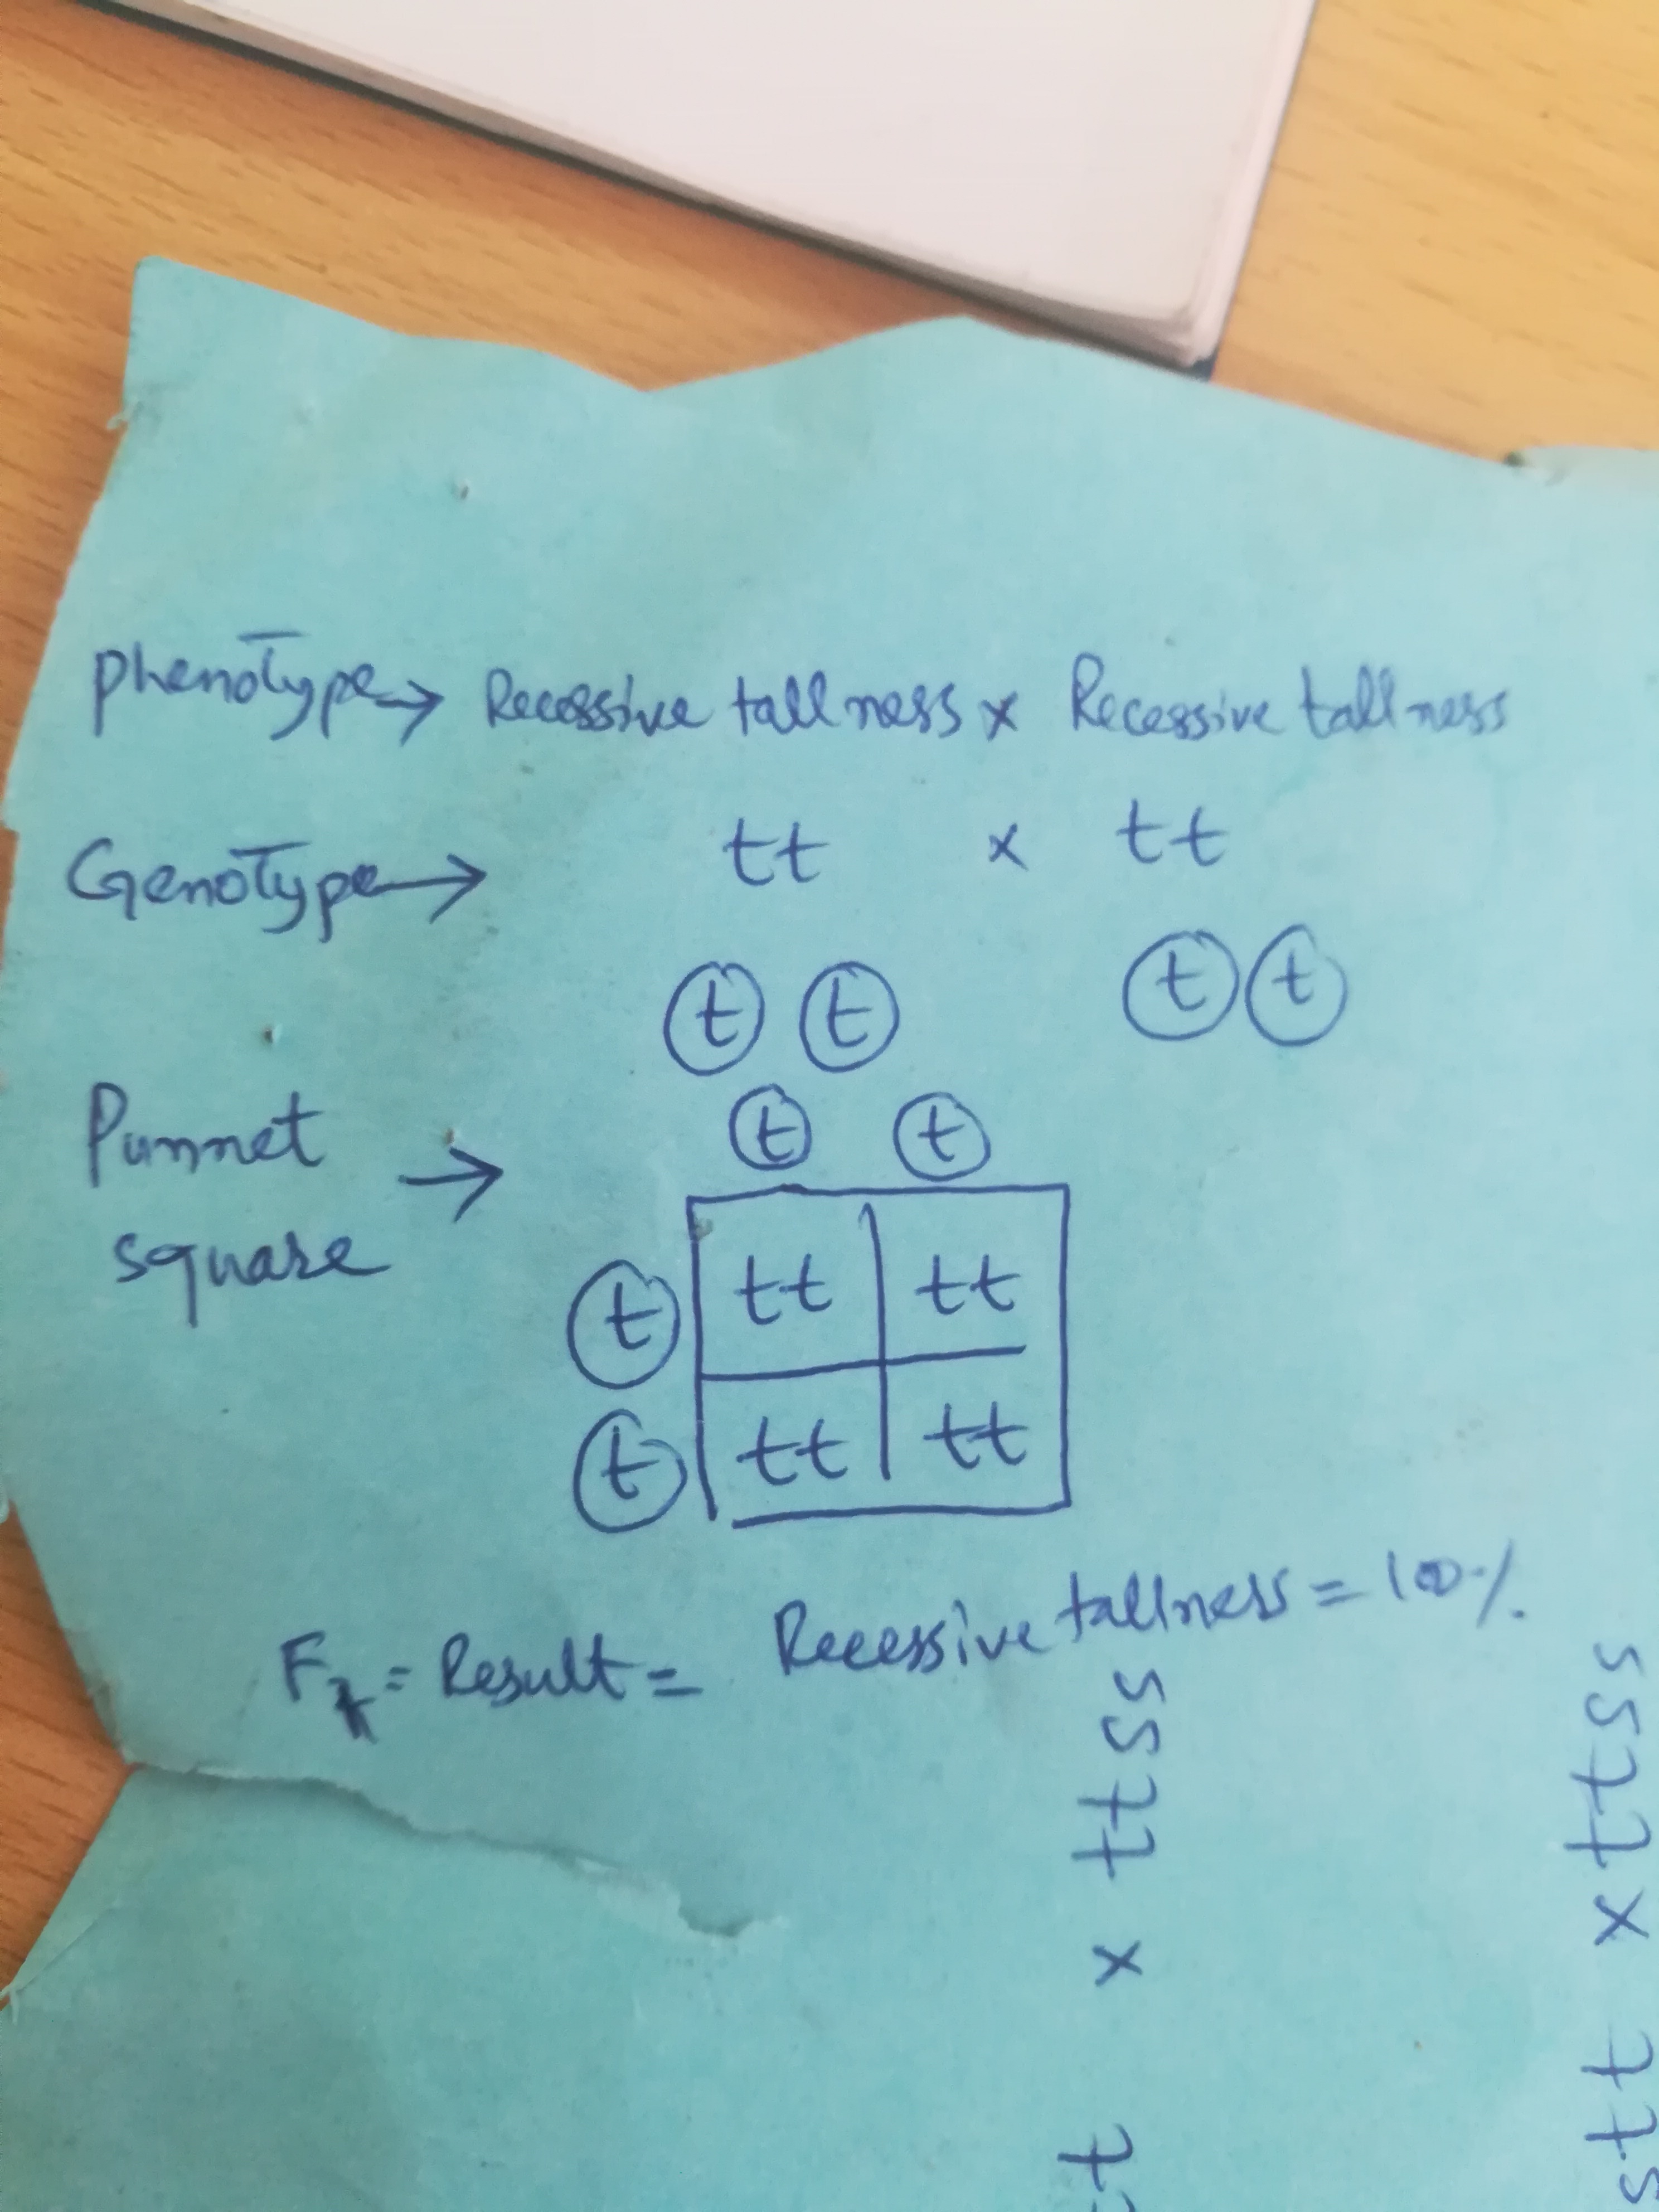 Phenotype → Recessive tallness x Recessive tallness
Genotype → tt x tt
t t t t
Punnet square →
t t
t tt tt
t tt tt
= Result = Recessive tallness = 100%